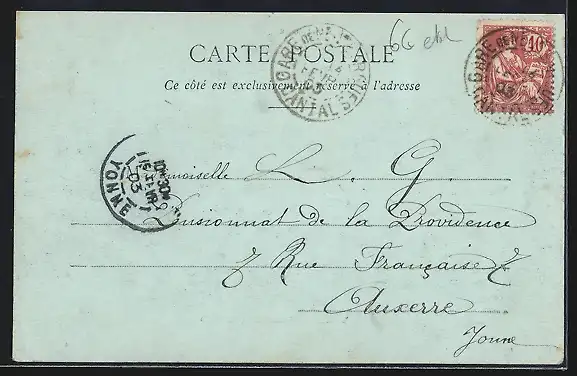 CARTE POSTALE
66 ebl
Ce côté est exclusivement réservé à l'adresse
GARE DE
CANTAL
10
YONNE
03
Demoiselle L. G.
Pensionnat de la Providence
7 Rue Française 7
Auxerre
Yonne